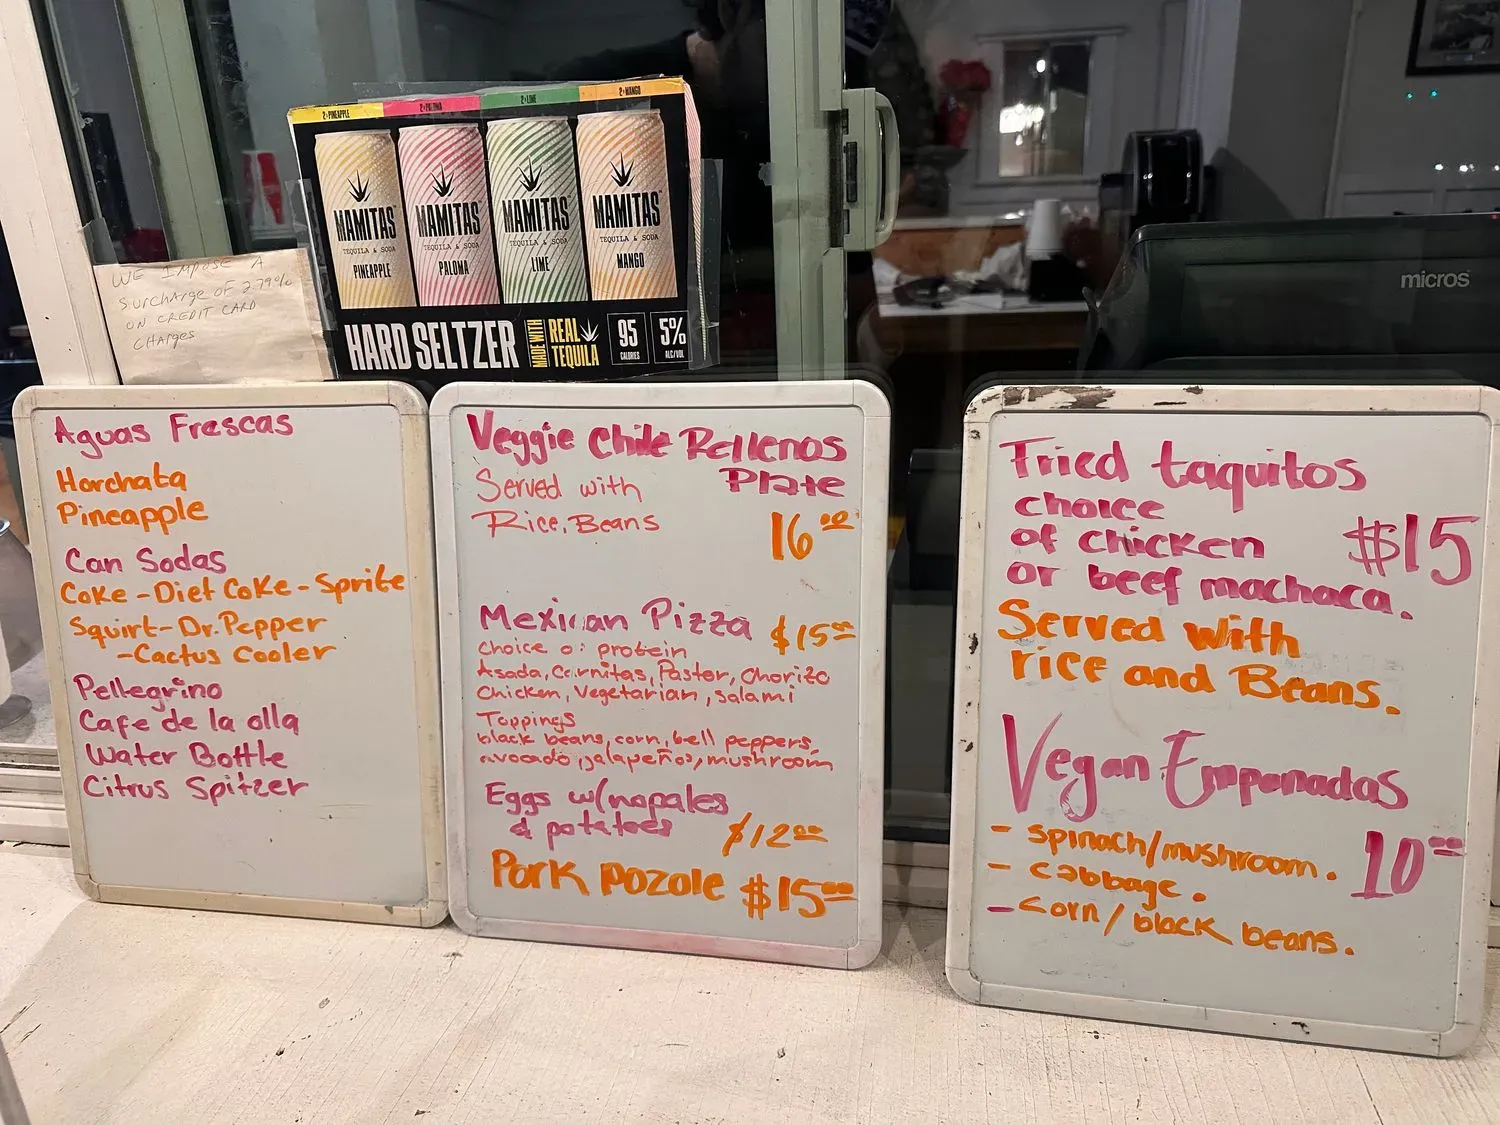 2 PINEAPPLE
2 PALOMA
2 LIME
2 MANGO
MAMITAS
TEQUILA & SODA
PINEAPPLE
MAMITAS
TEQUILA & SODA
PALOMA
MAMITAS
TEQUILA & SODA
LIME
MAMITAS
TEQUILA & SODA
MANGO
HARD SELTZER
MADE WITH
REAL
TEQUILA
95
CALORIES
5%
ALC/VOL
WE IMPOSE A
SURCHARGE OF 2.79%
ON CREDIT CARD
CHARGES
micros
Aguas Frescas
Horchata
Pineapple
Can Sodas
Coke - Diet Coke - Sprite
Squirt - Dr. Pepper
- Cactus Cooler
Pellegrino
Cafe de la olla
Water Bottle
Citrus Spitzer
Veggie Chile Rellenos
Plate
Served with
Rice, Beans
16.00
Mexican Pizza $15.00
choice o: protein
Asada, Carnitas, Pastor, Chorizo
Chicken, Vegetarian, Salami
Toppings
black beans, corn, bell peppers,
avocado, jalapeños, mushroom
Eggs w/nopales
& potatoes $12.00
Pork pozole $15.00
Fried taquitos
choice
of chicken
or beef machaca.
$15
Served with
rice and Beans.
Vegan Empanadas
- spinach/mushroom.
- cabbage.
- corn / black beans.
10.00